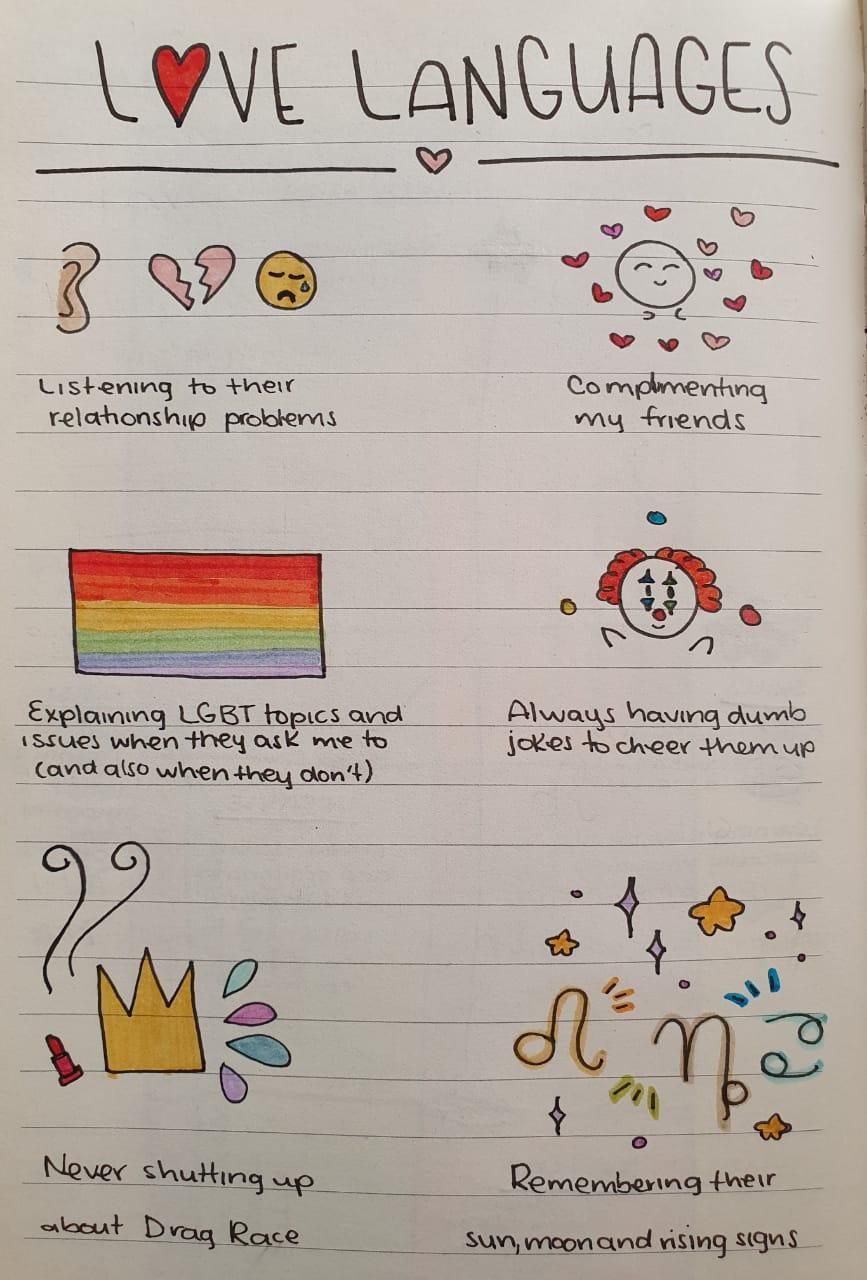 LOVE LANGUAGES
Listening to their
relationship problems
Complimenting
my friends
Explaining LGBT topics and
issues when they ask me to
(and also when they don't)
Always having dumb
jokes to cheer them up
Never shutting up
about Drag Race
Remembering their
sun, moon and rising signs